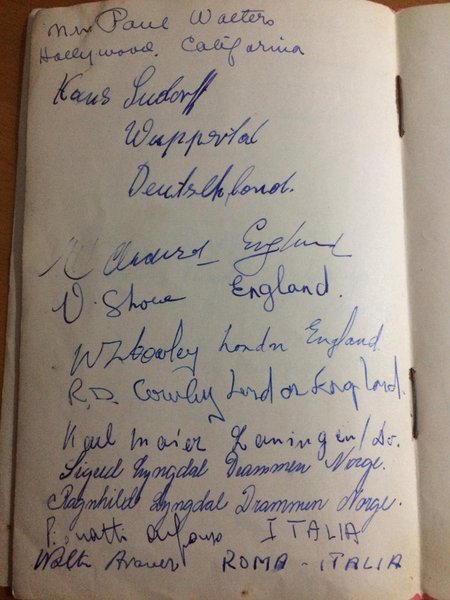 Mrs Paul Walters
Hollywood. California
Ludorff
Wuppertal
Deutschland.
England
England.
London England
R.D. Cowley London England.
Karl Maier
Sigurd Lyngdal Drammen Norge.
Ragnhild Lyngdal Drammen Norge.
ITALIA
ROMA - ITALIA